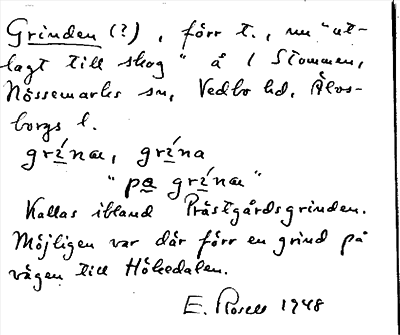 Grinden (?), förr t., nu "ut-
lagt till skog" å 1 Stommen,
Nössemarks sn, Vedbo hd, Älvs-
borgs l.
grínɑ, grína
"pɑ grínɑ"
Kallas ibland Prästgårdsgrinden.
Möjligen var där förr en grind på
vägen till Hökedalen.
E. Rosell 1948